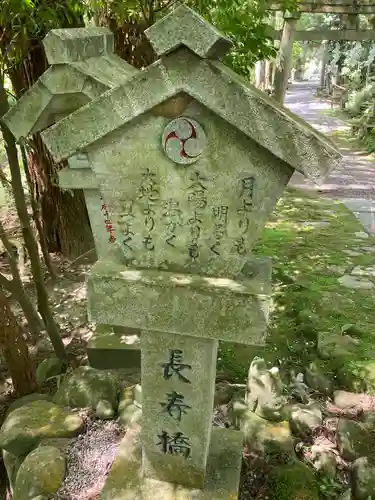 月よりも
明るく
太陽よりも
温かく
大地よりも
つよく
長寿橋